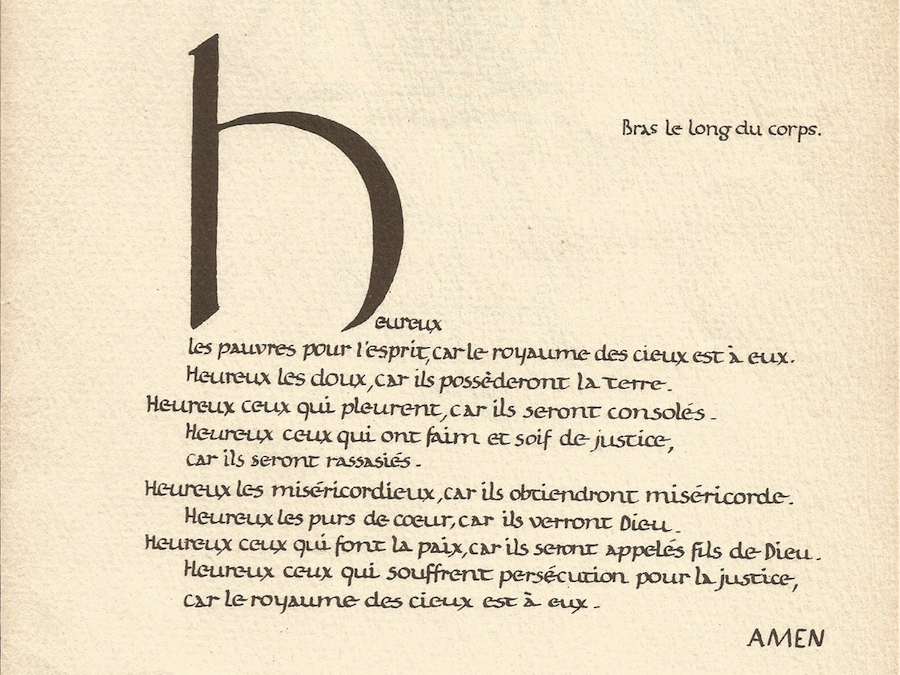 Bras le long du corps.
heureux
les pauvres pour l'esprit, car le royaume des cieux est à eux.
Heureux les doux, car ils possèderont la terre.
Heureux ceux qui pleurent, car ils seront consolés.
Heureux ceux qui ont faim et soif de justice,
car ils seront rassasiés.
Heureux les miséricordieux, car ils obtiendront miséricorde.
Heureux les purs de cœur, car ils verront Dieu.
Heureux ceux qui font la paix, car ils seront appelés fils de Dieu.
Heureux ceux qui souffrent persécution pour la justice,
car le royaume des cieux est à eux.
AMEN